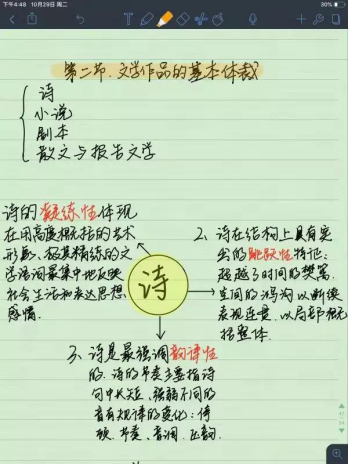 下午4:48 10月29日 周二
30%
第二节.文学作品的基本体裁
诗
小说
剧本
散文与报告文学
诗的凝练性体现
在用高度概括的艺术
形象、极其精练的文
学语词最集中地反映
社会生活和表达思想
感情.
诗
2、诗在结构上具有突
出的跳跃性特征:
超越了时间的樊篱、
空间的鸿沟以断续
表现连贯.以局部概
括整体.
3、诗是最强调韵律性
的.诗的节奏主要指诗
句中长短、强弱不同的
音有规律的变化:停
顿、节奏、音调、压韵.